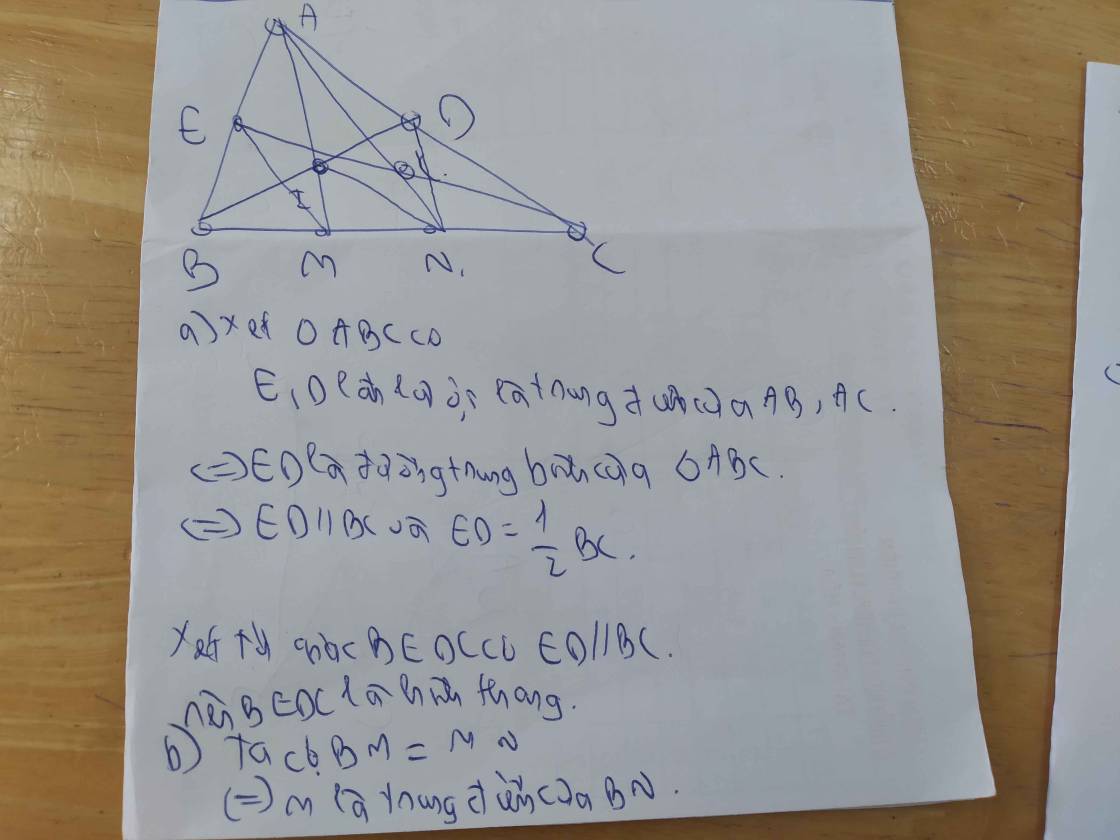 A
E
D
I
K
B
M
N.
C
a) xét Δ ABC có
E, D lần lượt là trung điểm của AB, AC.
<=> ED là đường trung bình của Δ ABC.
<=> ED // BC và ED = 1/2 BC.
xét tứ giác BEDC có ED // BC.
nên BEDC là hình thang.
b) Ta có BM = MN
<=> M là trung điểm của BN.